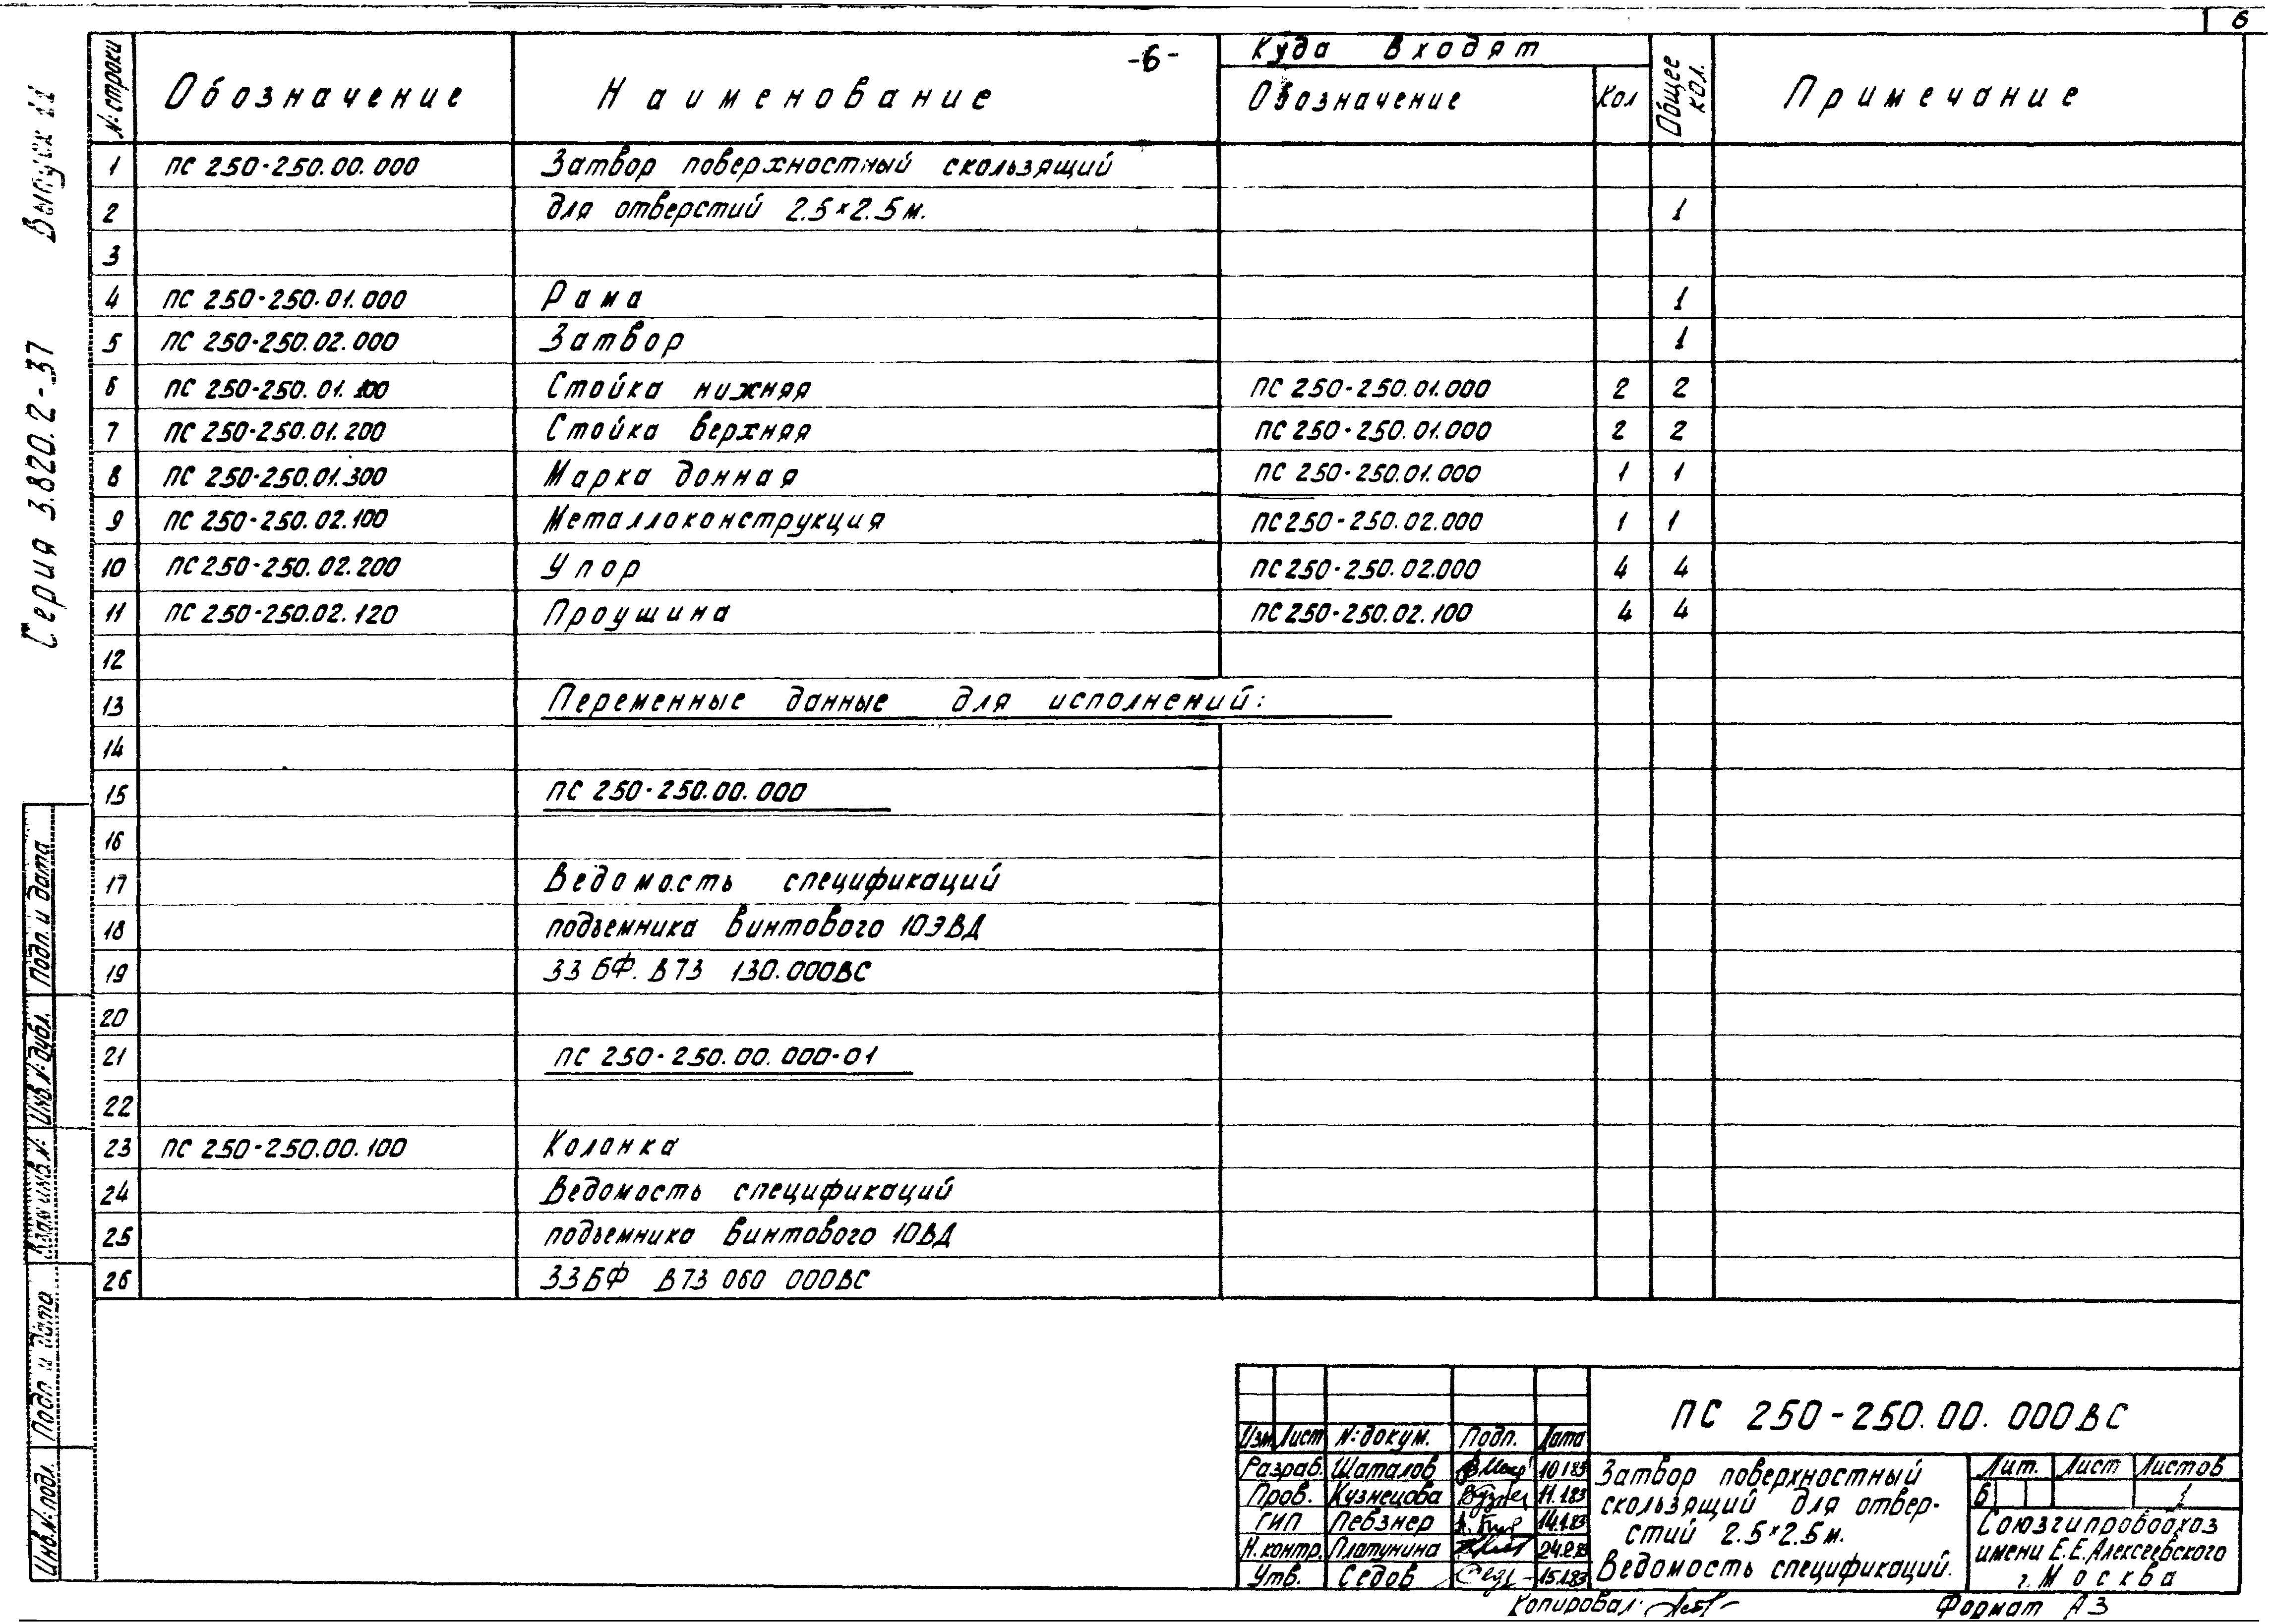 6
-6-
№ строки Обозначение Наименование Куда входят Общее кол. Примечание
Обозначение Кол
1 ПС 250-250.00.000 Затвор поверхностный скользящий
2 для отверстий 2.5×2.5м. 1
3
4 ПС 250-250.01.000 Рама 1
5 ПС 250-250.02.000 Затвор 1
6 ПС 250-250.01.100 Стойка нижняя ПС 250-250.01.000 2 2
7 ПС 250-250.01.200 Стойка верхняя ПС 250-250.01.000 2 2
8 ПС 250-250.01.300 Марка донная ПС 250-250.01.000 1 1
9 ПС 250-250.02.100 Металлоконструкция ПС 250-250.02.000 1 1
10 ПС 250-250.02.200 Упор ПС 250-250.02.000 4 4
11 ПС 250-250.02.120 Проушина ПС 250-250.02.100 4 4
12
13 Переменные данные для исполнений:
14
15 ПС 250-250.00.000
16
17 Ведомость спецификаций
18 подъемника винтового 10ЭВД
19 33 БФ. В73 130.000ВС
20
21 ПС 250-250.00.000-01
22
23 ПС 250-250.00.100 Колонка
24 Ведомость спецификаций
25 подъемника винтового 10ВД
26 33БФ В73 060 000ВС
Серия 3.820.2-37 Выпуск 11
Инв.№ подл. Подп. и дата Взам инв.№ Инв.№ дубл. Подп. и дата
ПС 250-250.00.000ВС
Изм Лист №докум. Подп. Дата
Разраб. Шаталов 10.1.83
Пров. Кузнецова 11.1.83
ГИП Певзнер 14.1.83
Н.контр. Платунина
Утв. Седов 15.1.83
Затвор поверхностный
скользящий для отвер-
стий 2.5×2.5м.
Ведомость спецификаций.
Лит. Лист Листов
Б 1
Союзгипроводхоз
имени Е.Е.Алексеевского
г. Москва
Копировал: Формат А3